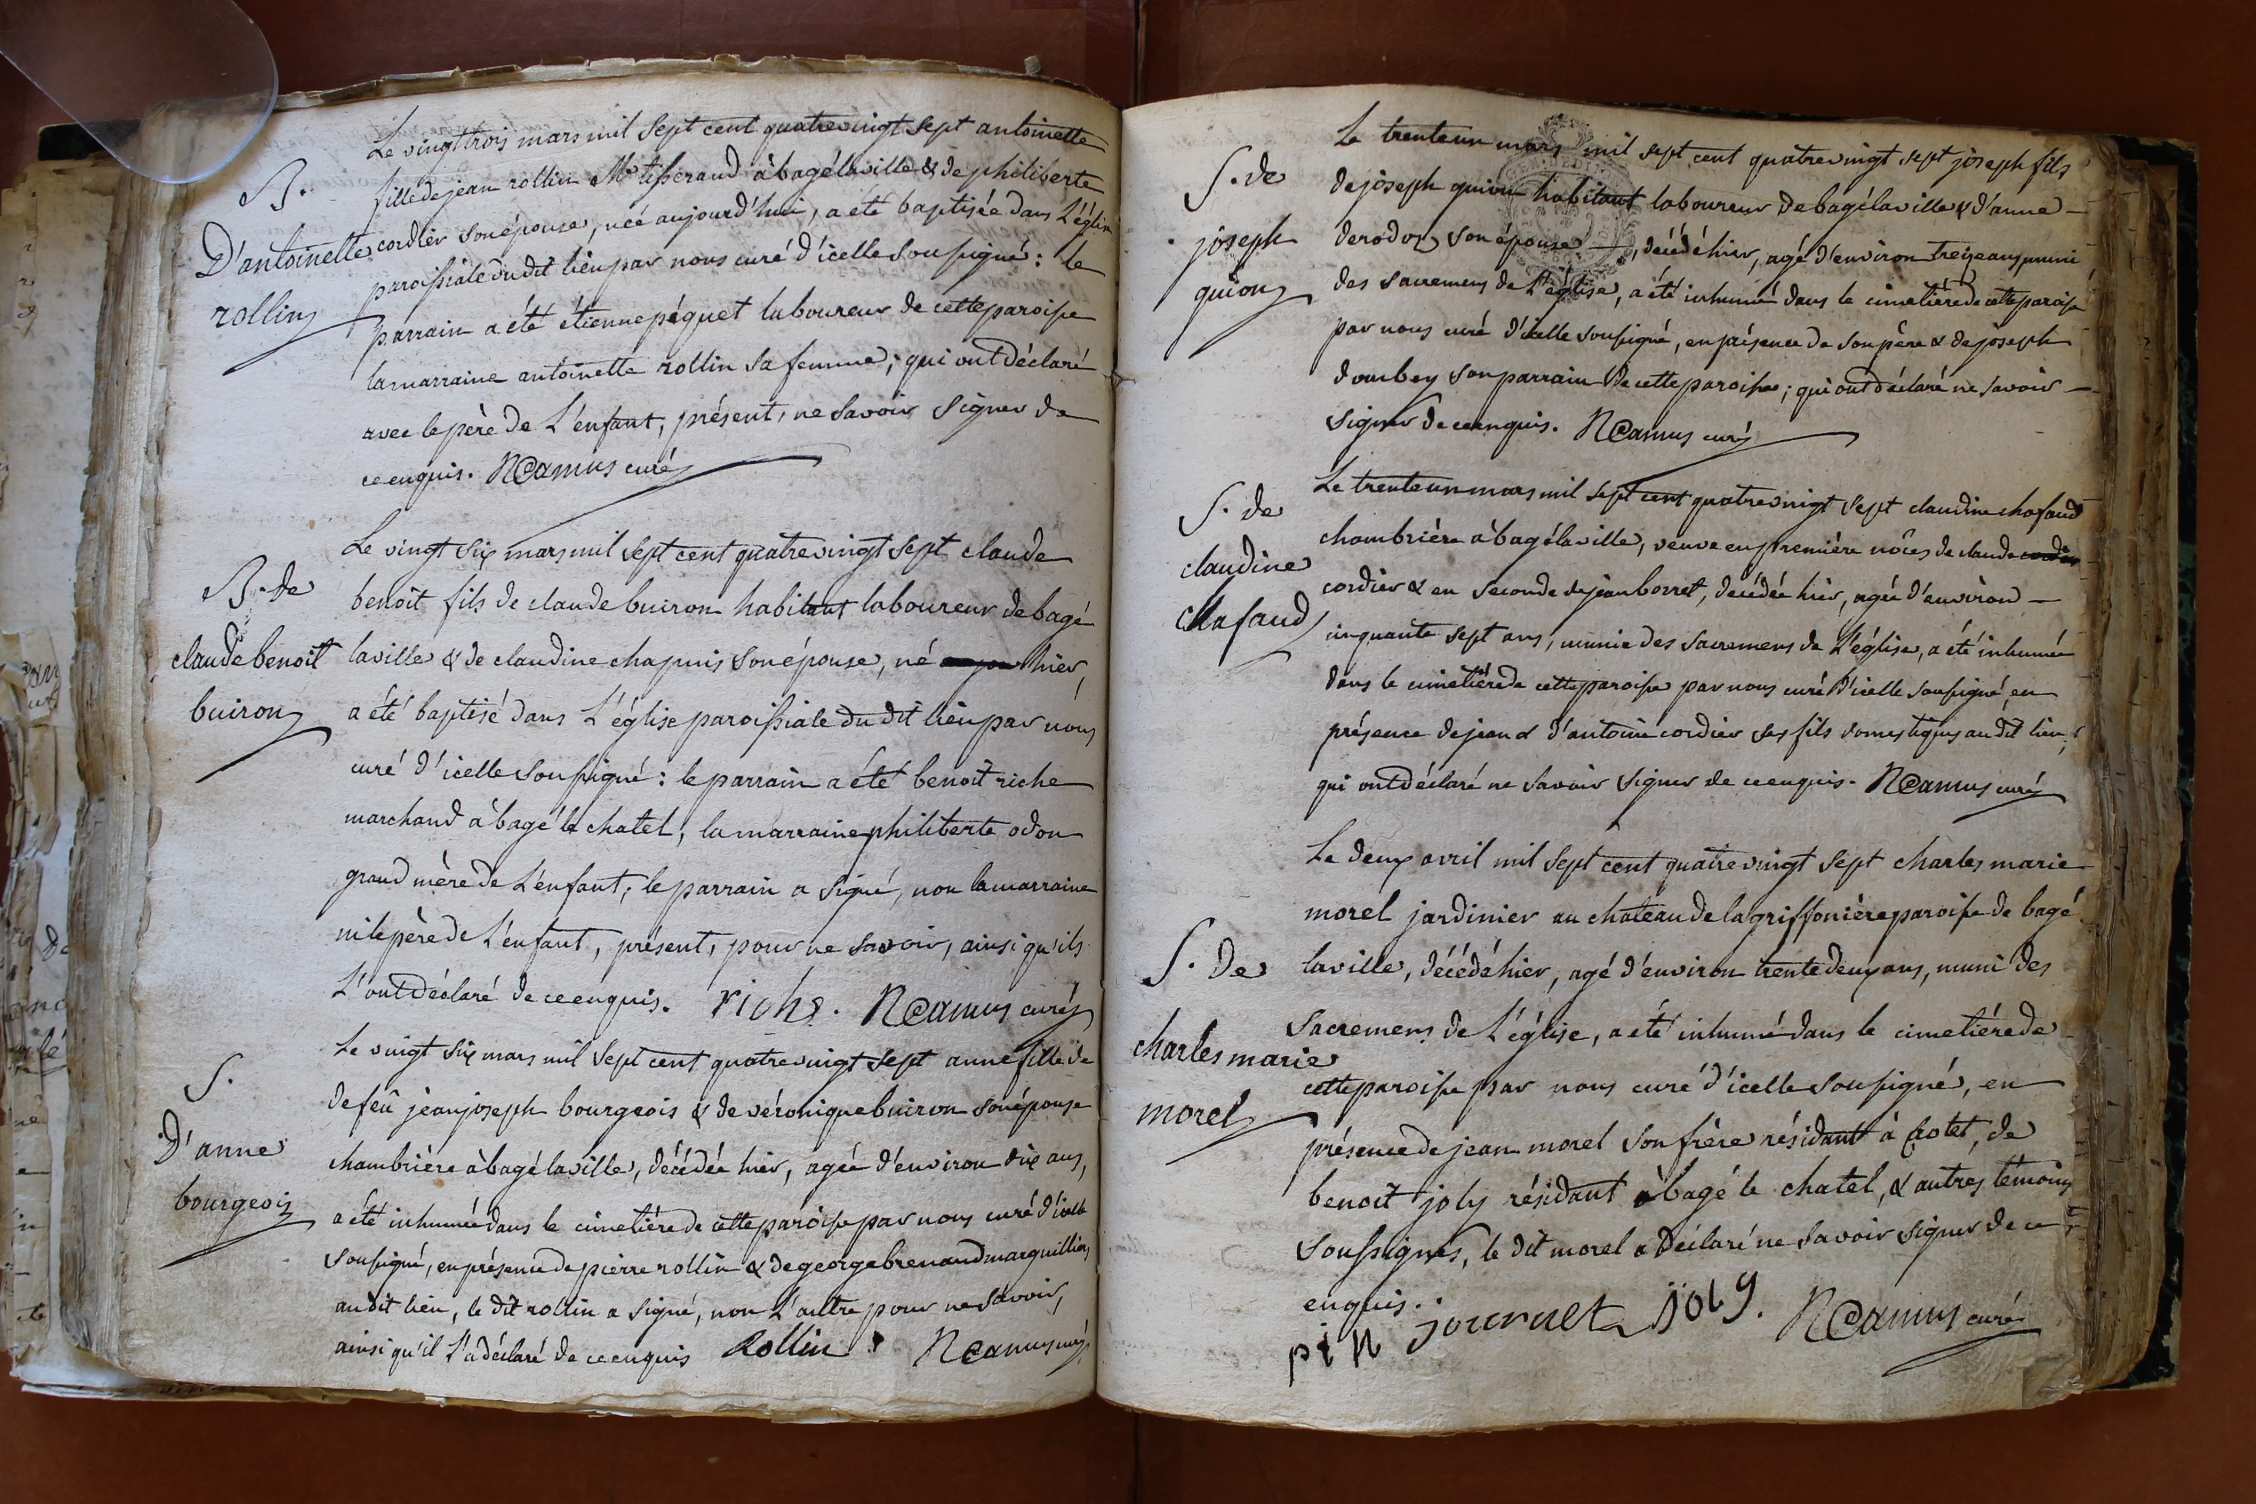 Le vingt trois mars mil sept cent quatrevingt sept antoinette
B.
fille de jean rollin Me tisserand à bagé la ville & de philiberte
D'antoinette
cordier son épouse, née aujourd'hui, a été baptisée dans L'église
rollin
paroissiale du dit lieu par nous curé d'icelle soussigné : le
parrain a été étienne péquet laboureur de cette paroisse
la marraine antoinette rollin sa femme ; qui ont déclaré
avec le père de L'enfant, présent, ne savoir signer de
ce enquis. NCamus curé
Le vingt six mars mil sept cent quatrevingt sept claude
B. de
benoit fils de claude buiron habitant laboureur de bagé
claude benoit
la ville & de claudine chapuis son épouse, né hier,
buiron
a été baptisé dans L'église paroissiale du dit lieu par nous
curé d'icelle soussigné : le parrain a été benoit riche
marchand à bagé le chatel, la marraine philiberte odon
grand mère de L'enfant ; le parrain a signé, non la marraine
ni le père de L'enfant, présent, pour ne savoir, ainsi qu'ils
L'ont déclaré de ce enquis. riche. NCamus curé
Le vingt six mars mil sept cent quatrevingt sept anne fille de
S.
de feû jean joseph bourgeois & de véronique buiron son épouse
D'anne
chambrière à bagé la ville, décédée hier, agée d'environ dix ans,
bourgeois
a été inhumée dans le cimetière de cette paroisse par nous curé d'icelle
soussigné, en présence de pierre rollin & de george brenaud marguilliers
au dit lieu, le dit rollin a signé, non L'autre pour ne savoir,
ainsi qu'il l'a déclaré de ce enquis Rollin NCamus curé
Le trente un mars mil sept cent quatrevingt sept joseph fils
S. de
de joseph guion habitant laboureur de bagé la ville & d'anne
joseph
derodon son épouse, décédé hier, agé d'environ treize ans, muni
guion
des sacremens de L'église, a été inhumé dans le cimetière de cette paroisse
par nous curé d'icelle soussigné, en présence de son père & de joseph
dombey son parrain de cette paroisse ; qui ont déclaré ne savoir
signer de ce enquis. NCamus curé
Le trente un mars mil sept cent quatrevingt sept claudine chafaud
S. de
chambrière à bagé la ville, veuve en première nôces de claude
claudine
cordier & en seconde de jean borret, décédée hier, agée d'environ
chafaud
cinquante sept ans, munie des sacremens de L'église, a été inhumée
dans le cimetière de cette paroisse par nous curé d'icelle soussigné, en
présence de jean & d'antoine cordier ses fils domestiques au dit lieu ;
qui ont déclaré ne savoir signer de ce enquis. NCamus curé
Le deux avril mil sept cent quatre vingt sept charles marie
morel jardinier au chateau de la griffonière paroisse de bagé
S. De
la ville, décédé hier, agé d'environ trente deux ans, muni des
sacremens de L'église, a été inhumé dans le cimetière de
charles marie
cette paroisse par nous curé d'icelle soussigné, en
morel
présence de jean morel son frère résidant à Crotet, de
benoit joly résidant à bagé le chatel, & autres témoins
soussignés, le dit morel a déclaré ne savoir signer de ce
enquis.
pin journet joly. NCamus curé